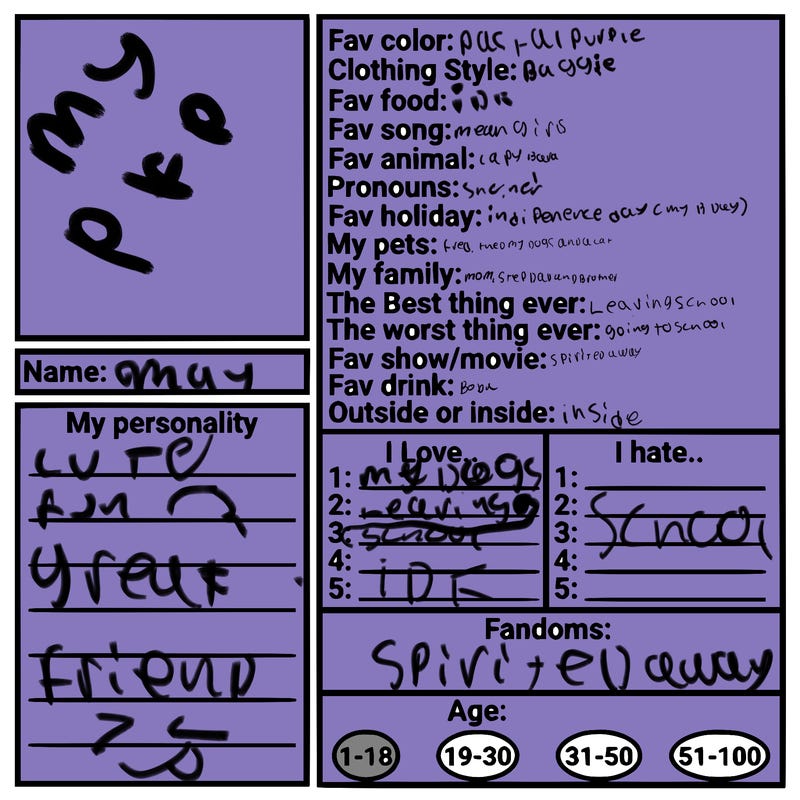 my
pfp
Name: may
My personality
cute
fun
great
Friend
Fav color: pastal purple
Clothing Style: Baggie
Fav food: iDk
Fav song: mean girls
Fav animal: capybara
Pronouns: she,her
Fav holiday: indipenence day (my B day)
My pets: DOGS and a cat
My family: mom, StepDad and Brother
The Best thing ever: Leaving school
The worst thing ever: going to school
Fav show/movie: spirited away
Fav drink: Boba
Outside or inside: inside
I Love..
1: my DOGS
2: Leaving
3: school
4:
5: iDK
I hate..
1:
2:
3: School
4:
5:
Fandoms:
Spirited away
Age:
1-18 19-30 31-50 51-100